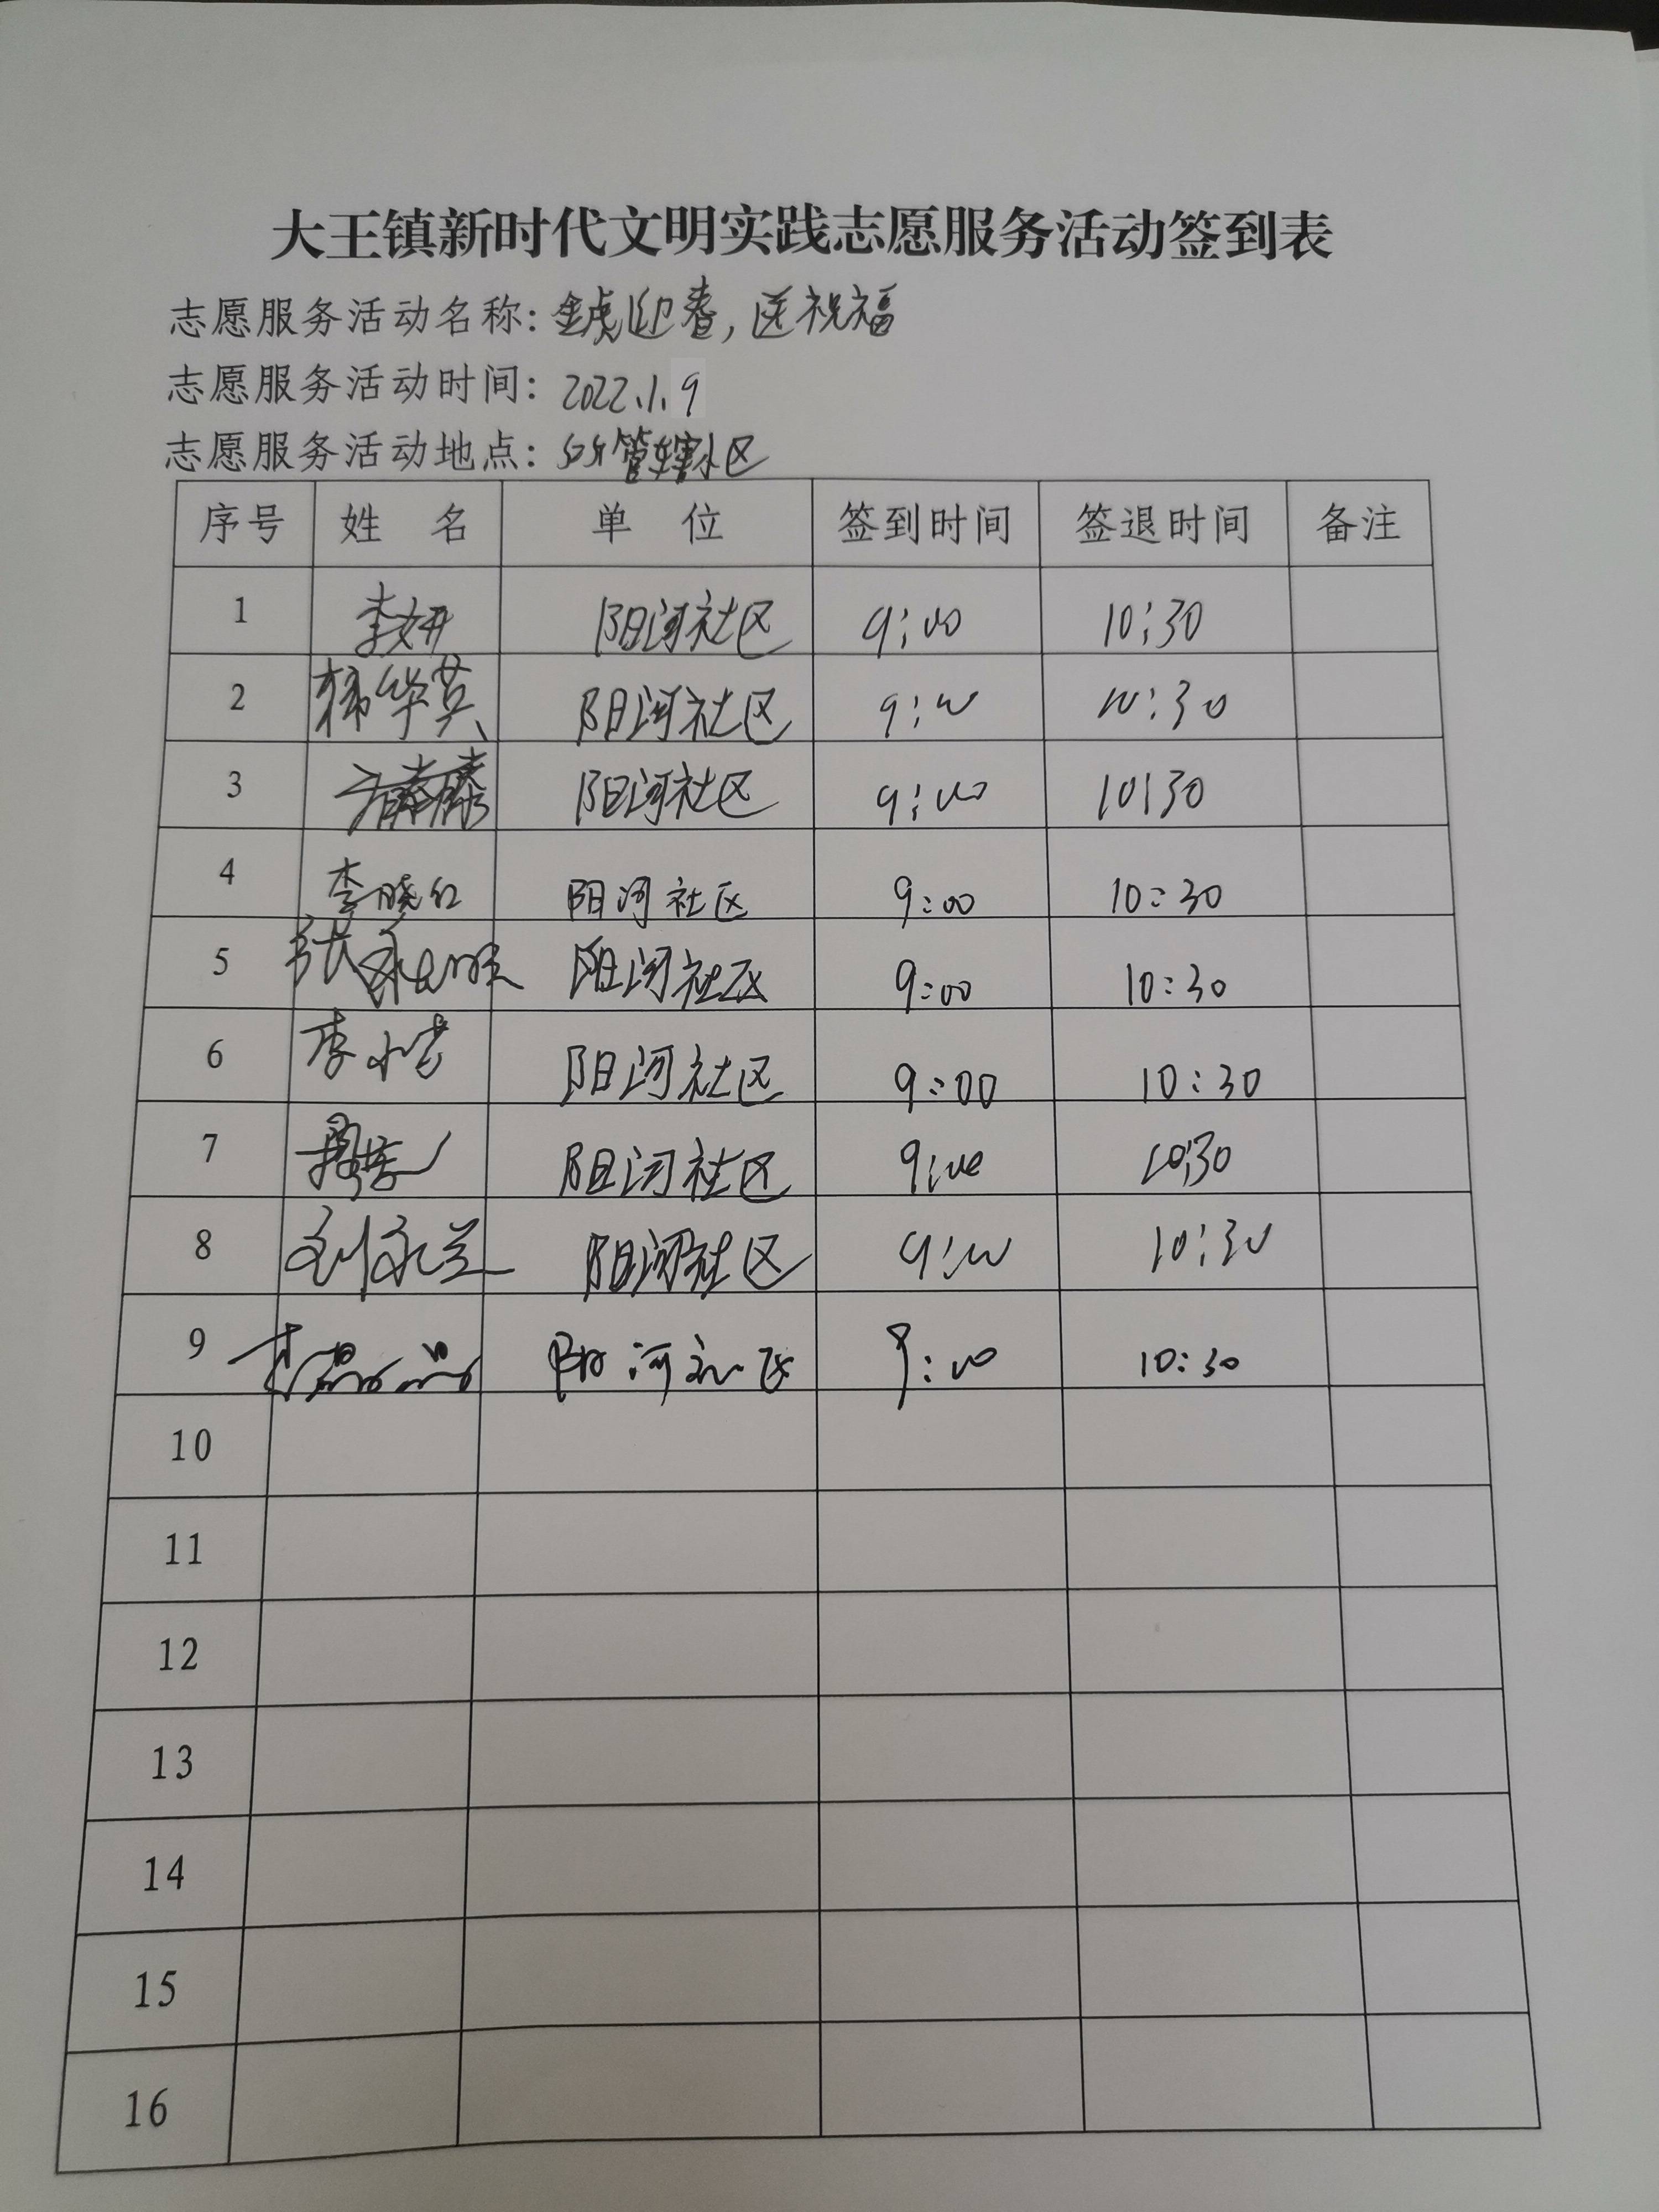 大王镇新时代文明实践志愿服务活动签到表
志愿服务活动名称：金虎迎春，送祝福
志愿服务活动时间：2022.1.9
志愿服务活动地点：管辖小区
序号 姓名 单位 签到时间 签退时间 备注
1 李妍 阳河社区 9:00 10:30
2 韩华英 阳河社区 9:00 10:30
3 阳河社区 9:00 10:30
4 李晓红 阳河社区 9:00 10:30
5 张 阳河社区 9:00 10:30
6 李 阳河社区 9:00 10:30
7 阳河社区 9:00 10:30
8 刘永兰 阳河社区 9:00 10:30
9 阳河社区 9:00 10:30
10
11
12
13
14
15
16